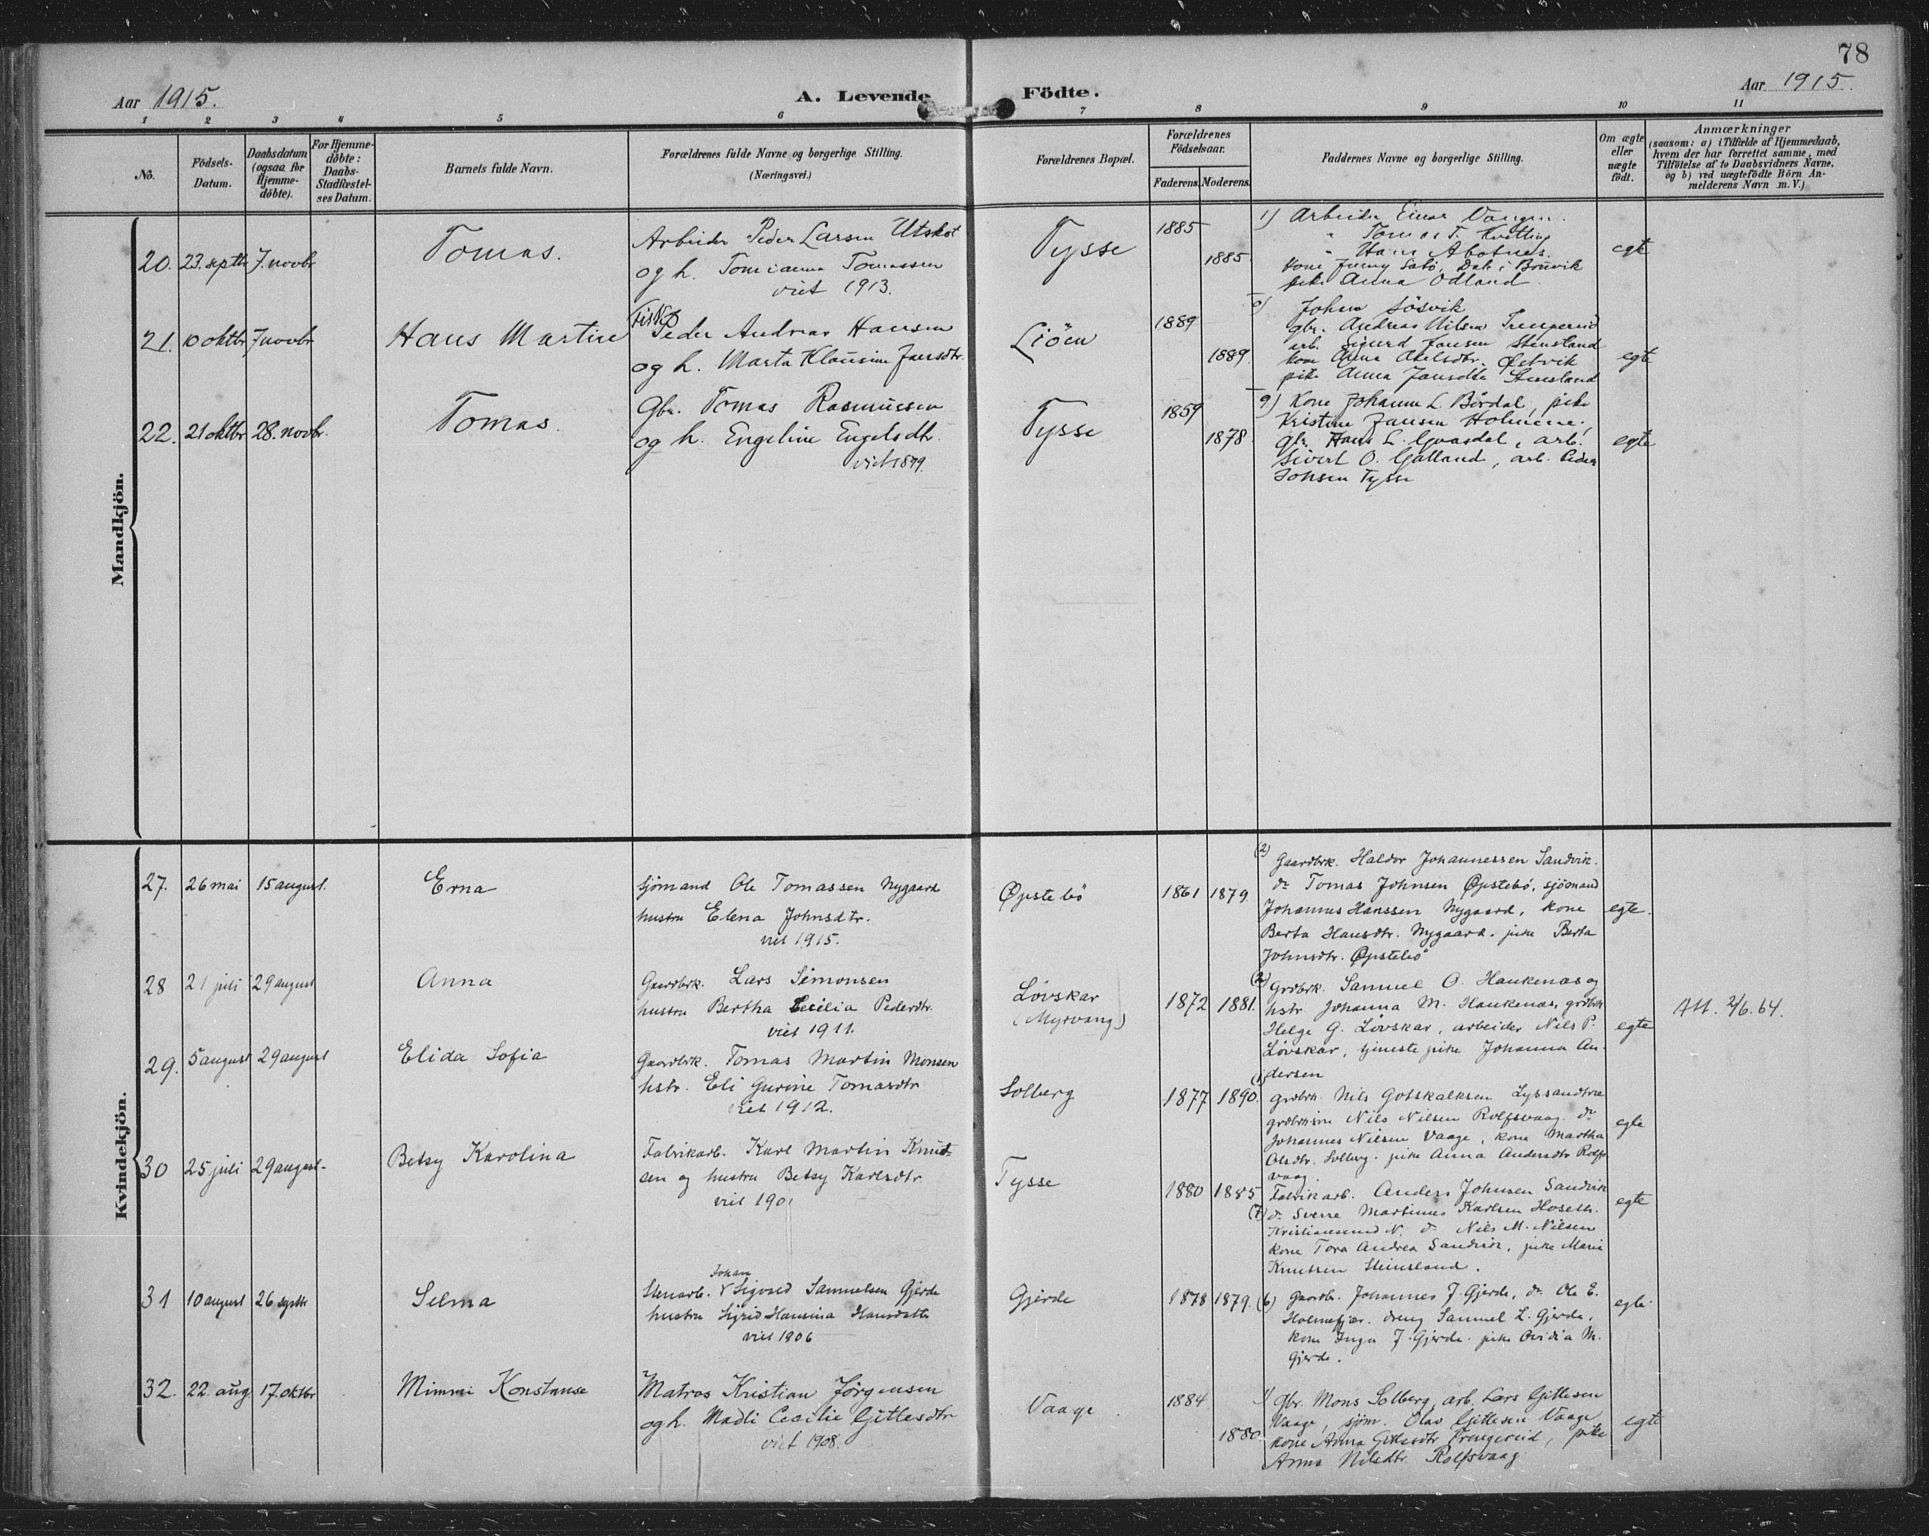 78
Aar 1915.
A. Levende Födte.
Aar 1915.
1 2 3 4 5 6 7 8 9 10 11
No.
Födsels-
Datum.
Daabsdatum
(ogsaa for
Hjemme-
döbte).
For Hjemme-
döbte:
Daabs-
Stadfæstel-
ses Datum.
Barnets fulde Navn.
Forældrenes fulde Navne og borgerlige Stilling.
(Næringsvei.)
Forældrenes Bopæl.
Forældrenes
Födselsaar.
Faderens. Moderens.
Faddernes Navne og borgerlige Stilling.
Om ægte
eller
uægte
födt.
Anmærkninger
(saasom: a) i Tilfælde af Hjemmedaab,
hvem der har forrettet samme, med
Tilföielse af to Daabsvidners Navne,
og b) ved uægtefödte Börn An-
melderens Navn m. V.)
Mandkjön.
20. 23. septbr 7. novbr
Tomas.
Arbeider Peder Larsen Utskot
og h. Tomianna Tomassen
viet 1913.
Tysse
1885
1885
1) Arbeider Einar Vangen.
" Tomas T. Kvitting
" Hans Abotnes.
kone Jenny Sabø, Dale i Bruvik
pike Anna Odland.
egte
21. 10 oktbr 7 novbr
Hans Martin
Fisker
Peder Andreas Hansen
og h. Marta Klausine Jansdtr.
Liöen
1889
1889.
Johan Søsvik
gbr. Andreas Nilsen Trengereid
arb. Sigurd Jansen Stensland
kone Anna Akelsdtr. Østvik
pike Anna Jansdtr Stensland
egte
22. 21 oktbr 28. novbr.
Tomas.
Gbr. Tomas Rasmussen
og h. Engeline Engelsdtr.
viet 1899.
Tysse
1859
1878
9) Kone Johanne L. Børdal, pike
Kristine Jansen Holmene,
gbr. Hans L. Gaasdal, arb.
Sivert O. Gålland, arb. Peder
Johsen Tysse
egte
Kvindekjön.
27. 26 mai 15 august.
Erna
Sjømand Ole Tomassen Nygaard
hustru Elena Johnsdtr.
viet 1915.
Øpstebö
1861 1879
(2) Gaardbrk. Haldor Johannessen Sandvik.
do Tomas Johnsen Øpstebö, sjömand
Johannes Hanssen Nygaard, kone
Berta Hansdtr. Nygaard. pike Berta
Johnsdtr. Øpstebö
egte.
28 21 juli 29 august
Anna
Gaardbrk. Lars Simonsen
hustru Bertha Cecilia Pedersdtr.
viet 1911.
Løvskar
(Myrvang)
1872 1881.
(2) Grdbrk. Samuel O. Haukenas og
hstr. Johanna M. Haukenas, grdbrk
Helge G. Løvskar, arbeider Nils P.
Løvskar, tjenestepike Johanna An-
dersen
egte
Att. 2/6. 64.
29. 5 august 29 august
Elida Sofia
Gaardbrk. Tomas Martin Monsen
hstr. Eli Gurine Tomasdtr
viet 1912.
Solberg
1877 1890.
(1) grdbrk. Nils Gotskalksen Lyssandtræ
Nils Nilsen Rolfsvaag. do
Johannes Nilsen Vaage, kone Martha
Olsdtr. Solberg. pike Anna Andersdtr Rolfs-
vaag.
egte
30 25 juli 29 august-
Betsy Karolina
Fabrikarb. Karl Martin Knud-
sen og hustru Betsy Karlsdtr.
viet 190
Tysse
1880 1885
(7) Fabrikarb. Anders Johnsen Sandvik
do Sverre Martinus Karlsen Hoseth.
Kristiansund N. do Nils M. Nilsen
kone Tora Andrea Sandvik, pike Marie
Knutsen Steinsland.
egte
31 10 august 26 septbr
Selma
Johan
Stenarb. V Sigvard Samuelsen Gjerde
hustru Sigrid Hansina Hansdtr
viet 1906
Gjerde
1878 1879.
(6) Gaardb. Johannes J. Gjerde, do Ole E.
Holmefjær. dreng Samuel L. Gjerde,
kone Inga J. Gjerde. pike Ovidia M.
Gjerde.
egte.
32. 22. aug 17. oktbr
Mimmi Konstanse
Matros Kristian Jørgensen
og h. Madli Cecilie Gitlesdtr
viet 1908.
Vaage
1884
1880.
1) Gbr. Mons Solberg, arb. Lars Gittlesen
Vaage, sjøm. Olav Gitlesen Vaage
kone Anna Gitlesdtr Trengereid, pike
Anna Nilsdtr Rolfsvaag
egte